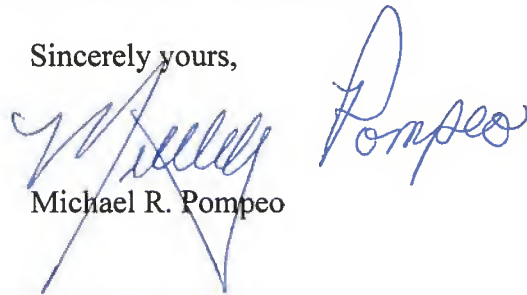 Sincerely yours,
Pompeo
Michael R. Pompeo